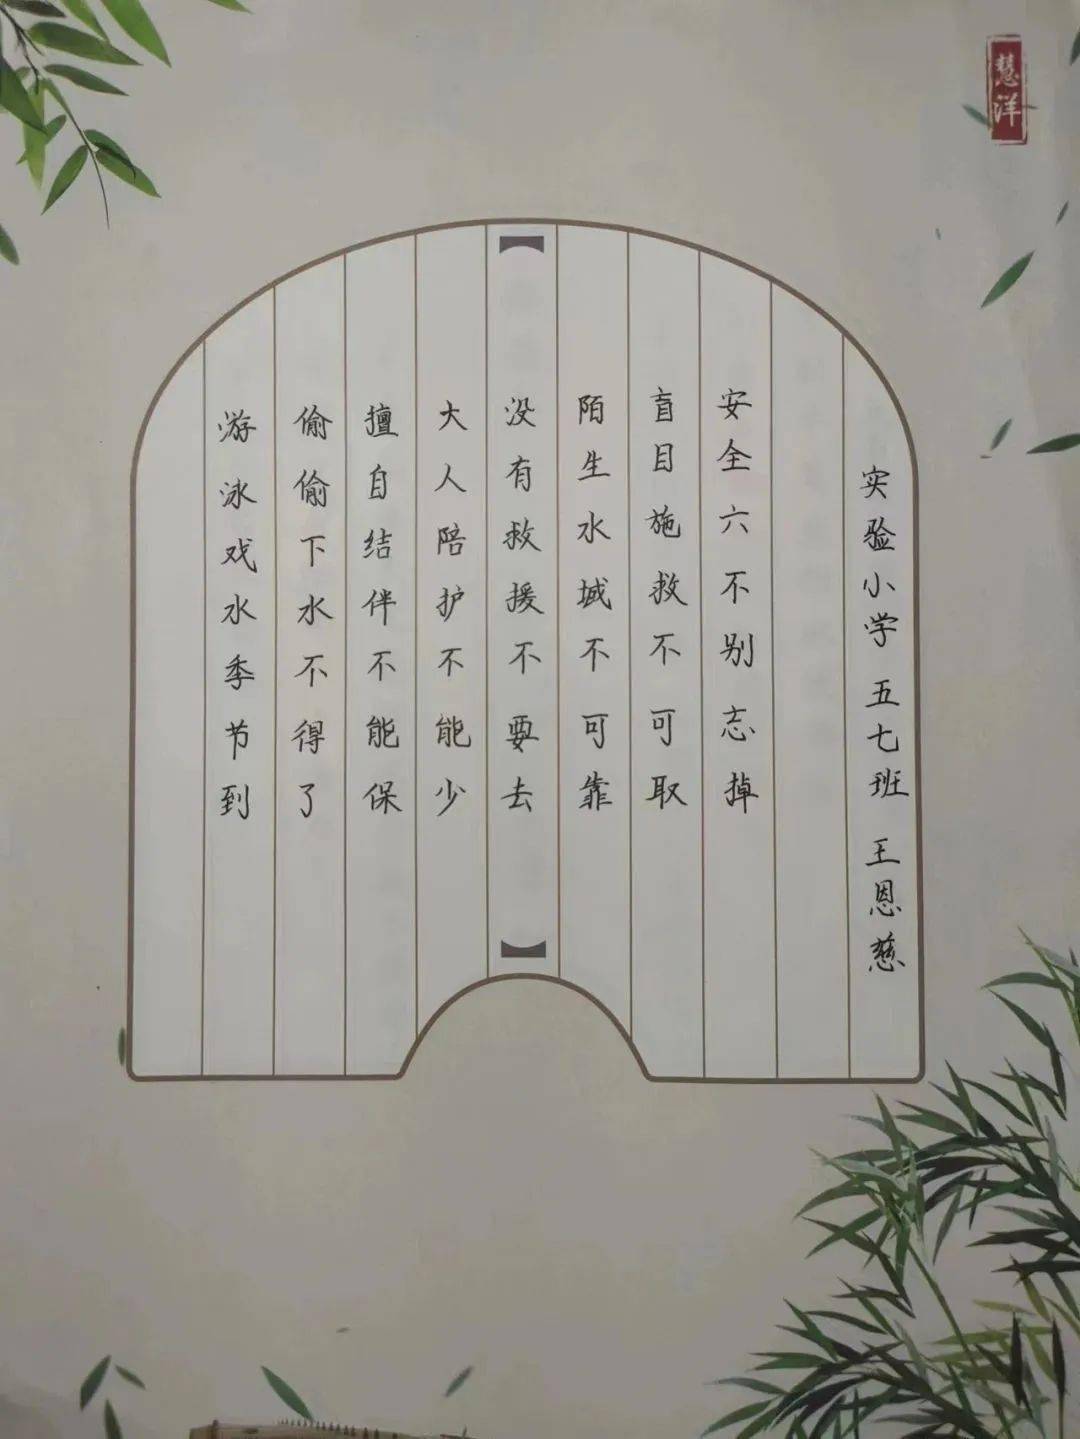 游泳戏水季节到
偷偷下水不得了
擅自结伴不能保
大人陪护不能少
没有救援不要去
陌生水域不可靠
盲目施救不可取
安全六不别忘掉
实验小学 五七班 王恩慈
慧洋